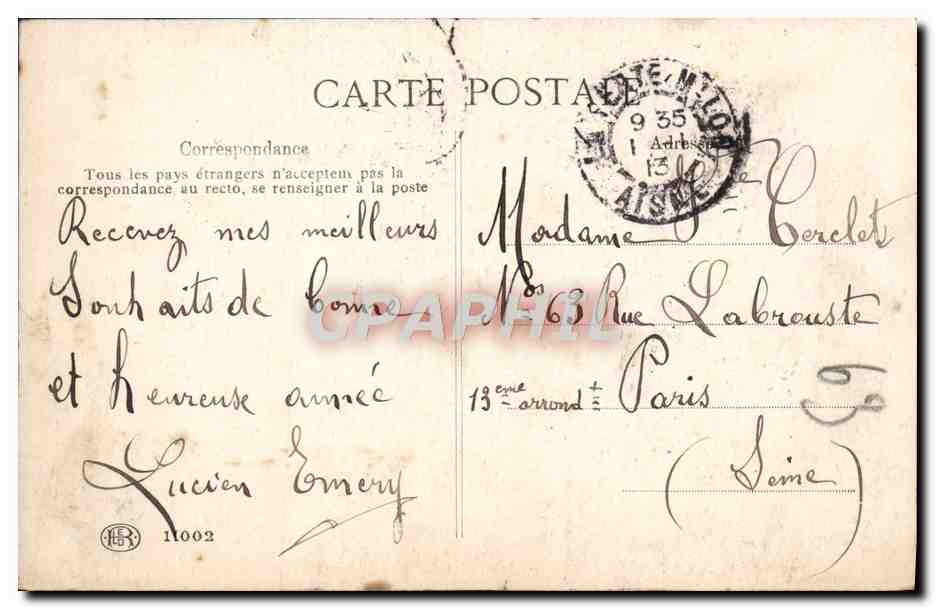 CARTE POSTALE
Correspondance
Tous les pays étrangers n'acceptent pas la
correspondance au recto, se renseigner à la poste
Recevez mes meilleurs
Souhaits de bonne
et heureuse année
Lucien Emery
11002
9 35
Adresse
13
AISNE
Madame Terclet
Nos 63 Rue Labrouste
13eme arrondt Paris
(Seine)
69
CPAPHIL